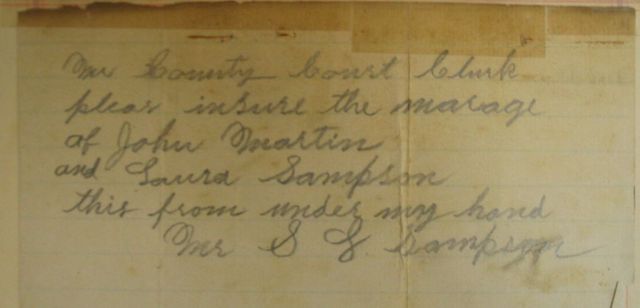 Mr County Court Clurk
pleas insure the marage
of John Martin
and Laura Sampson
this from under my hand
Mr S G Sampson